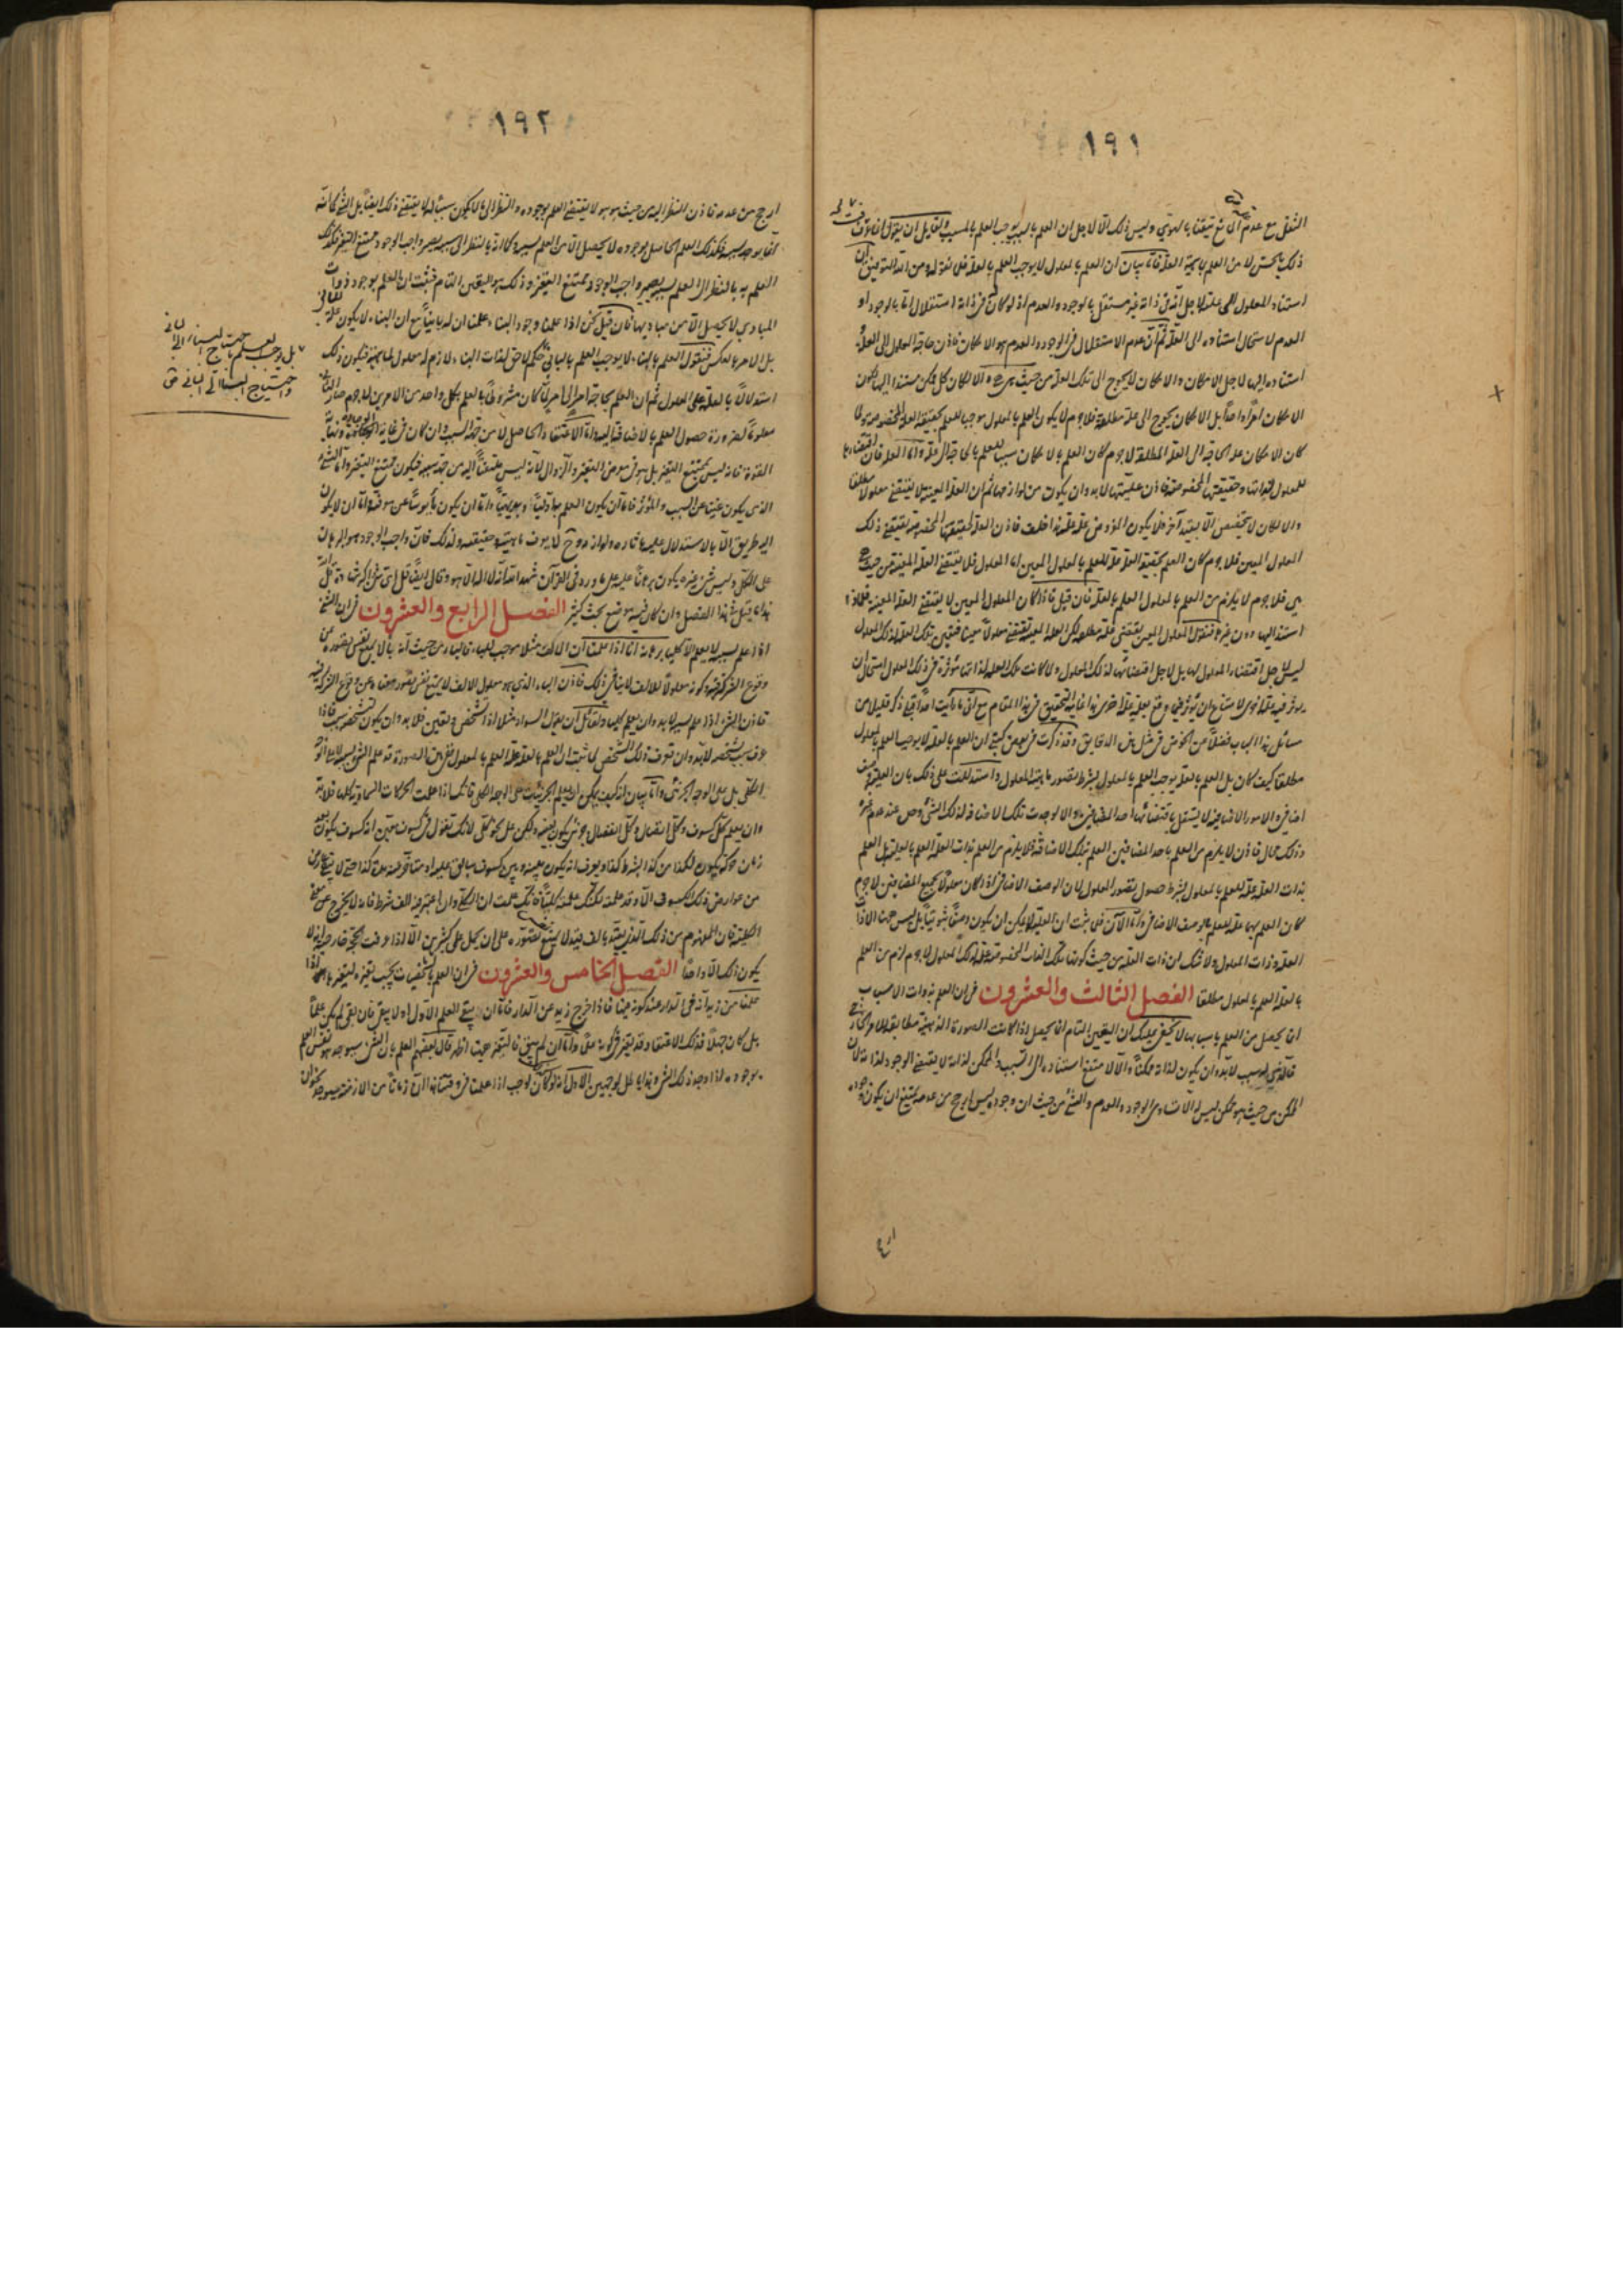 ١٩١
الثقل مع عدم
ذلك بالحس لا من العلم بماهية العلة فاما بيان ان العلم بالمعلول لا يوجب العلم بالعلة فلان نقول ومن الله التوفيق ان
استناد المعلول الى علته لاجل انه في ذاته غير مستقل بالوجود والعدم اذ لو كان في ذاته استقلال اما بالوجود او
العدم لاستحال استناده الى العلة ثم ان عدم الاستقلال في الوجود والعدم هو الامكان فاذن حاجة المعلول الى العلة
استناده اليها لاجل الامكان والامكان لا يحوج الى تلك العلة من حيث هي هي والا لكان كل ممكن مستندا اليها لكون
الامكان امرا واحدا بل الامكان يحوج الى علة مطلقة فلا جرم لا يكون العلم بالمعلول موجبا للعلم بحقيقة العلة المخصوصة ولما
كان الامكان علة الحاجة الى العلة المطلقة لا جرم كان العلم بالامكان سببا للعلم بالحاجة الى علة واما العلة فان اقتضاءها
للمعلول لذاتها وحقيقتها المخصوصة فاذن عليتها لا بد وان يكون من لوازمها ثم ان العلة المعينة لا يقتضى معلولا مطلقا
والا لكان لا يتخصص الا بقيد آخر فلا يكون المفروض علة علة هذا خلف فاذن العلة لحقيقتها المخصوصة يقتضى ذلك
المعلول المعين فلا جرم كان العلم بحقيقة العلة علة للعلم بالمعلول المعين اما المعلول فلا يقتضى العلة المعينة من حيث هي
هي فلا جرم لا يلزم من العلم بالمعلول العلم بالعلة فان قيل فاذا كان المعلول المعين لا يقتضى العلة المعينة فلماذا
استند اليها دون غيرها فنقول المعلول المعين يقتضى علة مطلقة لكن العلة المعينة تقتضى معلولا معينا فتعين تلك العلة لذلك المعلول
ليس لاجل اقتضاء المعلول لها بل لاجل اقتضائها لذلك المعلول ولما كانت تلك العلة لذاتها مؤثرة في ذلك المعلول استحال ان
يؤثر فيه علة اخرى لامتناع ان مع بعلة اخرى فهذا غاية التحقيق في هذا المقام مع اني ما رأيت احدا قبلي ذكر قليلا من
مسائل هذا الباب فضلا عن الخوض في مثل هذه الدقايق وقد ذكرت في بعض كتبي ان العلم بالعلة لا يوجب العلم بالمعلول
مطلقا كيف كان بل العلم بالعلة يوجب العلم بالمعلول بشرط تصور ماهية المعلول واستدللت على ذلك بان العلية وصف
اضافي والامور الاضافية لا يستقل باقتضائها احد المضافين والا لوجدت تلك الاضافة لذلك الشيء وحده عند عدم غيره
وذلك محال فاذن لا يلزم من العلم باحد المضافين العلم بتلك الاضافة فلا يلزم من العلم بذات العلة العلم بالعلية بل العلم
بذات العلة علة للعلم بالمعلول بشرط حصول تصور المعلول لان الوصف الاضافي اذا كان معلولا لجميع المضافين لا جرم
كان العلم بهما علة للعلم بالوصف الاضافي واما الآن فلما ثبت ان العلية لا يمكن ان يكون وصفا ثبوتيا بل ليس هنا الا ذات
العلة وذات المعلول ولا شك ان ذات العلة من حيث كونها تلك الذات المخصوصة علة لذلك المعلول لا جرم لزم من العلم
بالعلة العلم بالمعلول مطلقا الفصل الثالث والعشرون في ان العلم بذوات الاسباب
انما يحصل من العلم باسبابها لا يخفى عليك ان اليقين التام انما يحصل اذا كانت الصورة الذهنية مطابقة للامر الخارجي
فالذي له سبب لا بد وان يكون لذاته ممكنا والا لامتنع استناده الى السبب والممكن لذاته لا يقتضى الوجود لذاته لان
الممكن من حيث هو ممكن ليس له الا تساوى الوجود والعدم والشيء من حيث ان وجوده ليس ارجح من عدمه يمتنع ان يكون وجوده
ارجح
١٩٢
ارجح من عدمه فاذن النظر اليه من حيث هو هو لا يقتضى العلم بوجوده والنظر الى ما لا يكون سببا له لا يقتضى ذلك ايضا بل الشيء كما انه
انما يوجد بسببه فكذلك العلم الحاصل بوجوده لا يحصل الا من العلم بسببه وكما انه بالنظر الى سببه يصير واجب الوجود ممتنع التغير فكذلك
العلم به بالنظر الى العلم بسببه يصير واجب الوجود ممتنع التغير وذلك هو اليقين التام فثبت ان العلم بوجود ذوات
المبادي لا يحصل الا من مباديها فان قيل نحن اذا علمنا وجود البناء علمنا ان له بانيا مع ان البناء لا يكون علة للباني
بل الامر بالعكس فنقول العلم بالبناء لا يوجب العلم بالباني
حكم لاحق لذات البناء ولازم له معلول لماهيته فيكون ذلك
استدلالا بالعلة على المعلول ثم ان العلم بحاجة امر الى امر لما كان مشروطا بالعلم بكل واحد من الامرين لا جرم صار الباني
معلوما لضرورة حصول العلم بالاضافة اليه واما الاعتقاد الحاصل لا من جهة السبب وان كان في غاية ونهاية
القوة فانه ليس بممتنع التغير بل هو في معرض التغير والزوال لانه ليس ملتفتا اليه من جهة سببه فيكون ممتنع التغير واما الشيء
الذي يكون غنيا عن السبب والمؤثر فاما ان يكون العلم به اوليا بديهيا واما ان يكون مأيوسا عن معرفته واما ان لا يكون
اليه طريق الا بالاستدلال عليه بآثاره ولوازمه وح لا يعرف ماهيته وحقيقته ولذلك فان واجب الوجود هو البرهان
على الكل وليس شيء غيره يكون برهانا عليه على ما ورد في القرآن شهد الله انه لا اله الا هو وقال ايضا قل اي شيء اكبر شهادة قل الله
هذا ما قيل في هذا الفصل وان كان فيه موضع بحث كثير الفصل الرابع والعشرون في ان الشيء
اذا علم بسببه لا يعلم الا كليا برهانه انا اذا علمنا ان الالف مثلا موجب للباء فالباء من حيث انه باء لا يمنع نفس تصوره عن
وقوع الشركة فيه وكونه معلولا للالف لا ينافي ذلك فاذن الباء الذي هو معلول الالف لا يمنع نفس تصور معناه عن وقوع الشركة فيه
فاذن الشيء اذا علم بسببه لا بد وان يعلم كليا ولقائل ان يقول السواد مثلا اذا تشخص وتعين فلا بد وان يكون لتشخصه سبب فاذا
عرف سبب تشخصه لا بد وان تعرف ذلك التشخص لما ثبت ان العلم بالعلة علة العلم بالمعلول ففي هذه الصورة قد علم الشيء بسببه لا على الوجه
الكلي بل على الوجه الجزئي واما بيان انه كيف يمكن ان يعلم الجزئيات على الوجه الكلي فانك اذا علمت الحركات السماوية كلها فلا بد
وان يعلم كل كسوف وكل اتصال وكل انفصال جزئي يكون بعينه ولكن على نحو كلي لانك تقول في كسوف معين انه كسوف يكون بعد
زمان حركة يكون لكذا من كذا بشرط كذا ويعرف انه يكون بينه وبين كسوف سابق عليه او متاخر عنه مدة كذا حتى لا يبقى عارض
من عوارض ذلك الكسوف الا وقد علمته لكنك علمته كليا
الكلية فان المفهوم من ذلك الذي يقيد بالف قيد لا يمنع تصوره على ان يحمل على كثيرين الا اذا عرفت بحجة خارجية انه لا
يكون ذلك الا واحدا الفصل الخامس والعشرون في ان العلم بالشخصيات يجب تغيره لتغيرها اذا
علمنا من زيد انه في الدار عند كونه فيها فاذا خرج زيد عن الدار فاما ان يبقى العلم الاول او لا يبقى فان بقى لم يكن علما
بل كان جهلا فذلك الاعتقاد قد تغير في كونه علما واما ان لم يبق فالتغير حينئذ اظهر قال بعضهم العلم بان الشيء سيوجد هو نفس العلم
بوجوده اذا وجد ذلك الشيء وهذا باطل لوجهين الاول انه لو كان لوجب اذا علمنا
بل يوجب العلم باحتياج البناء الى الباني
واحتياج البناء الى الباني